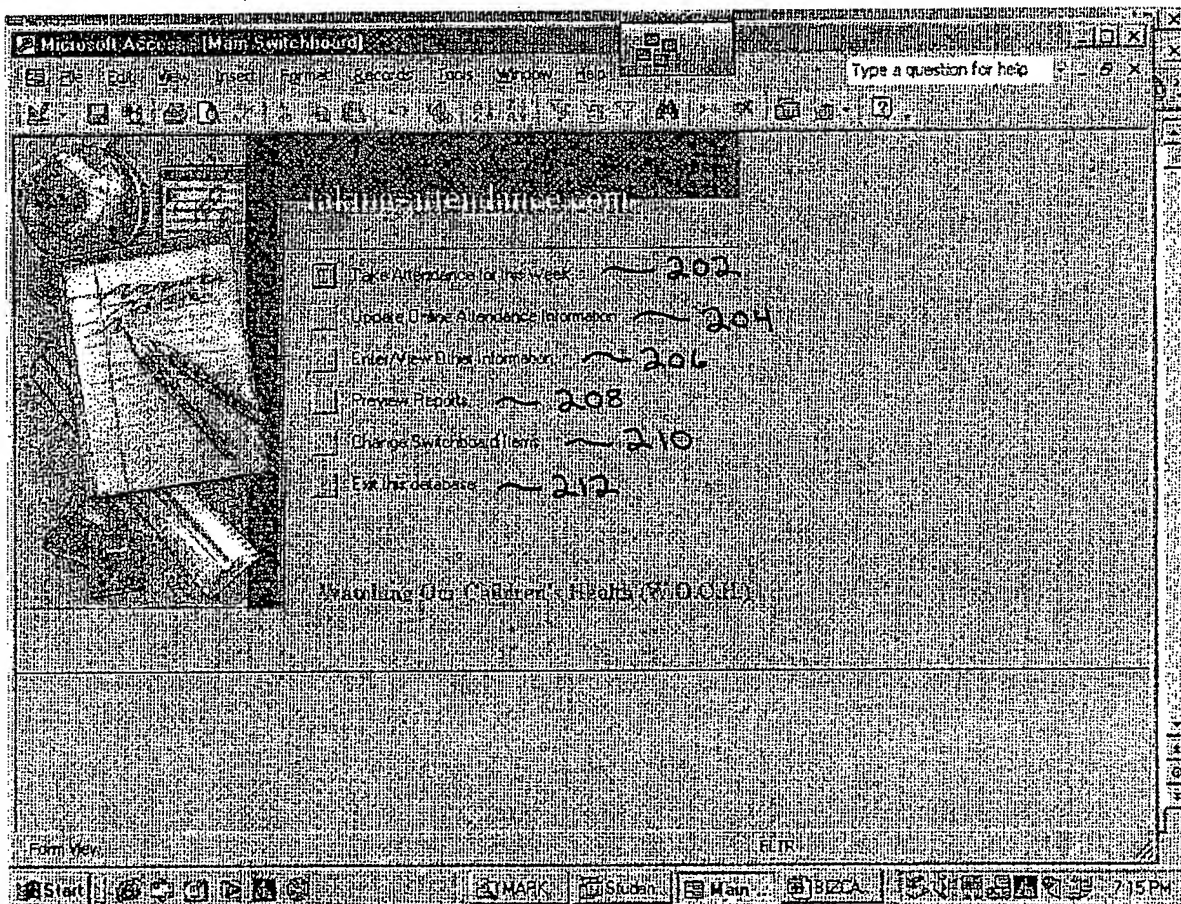 Microsoft Access - [Main Switchboard]
File Edit View Insert Format Records Tools Window Help
Type a question for help
Take Attendance for this Week 202
Update Online Attendance Information 204
Enter/View Other Information 206
Preview Reports 208
Change Switchboard Items 210
Exit this database 212
Watching Our Children's Health (W.O.C.H.)
Form View FLTR
Start MARK Studen... Main ... BIZCA... 7:15 PM